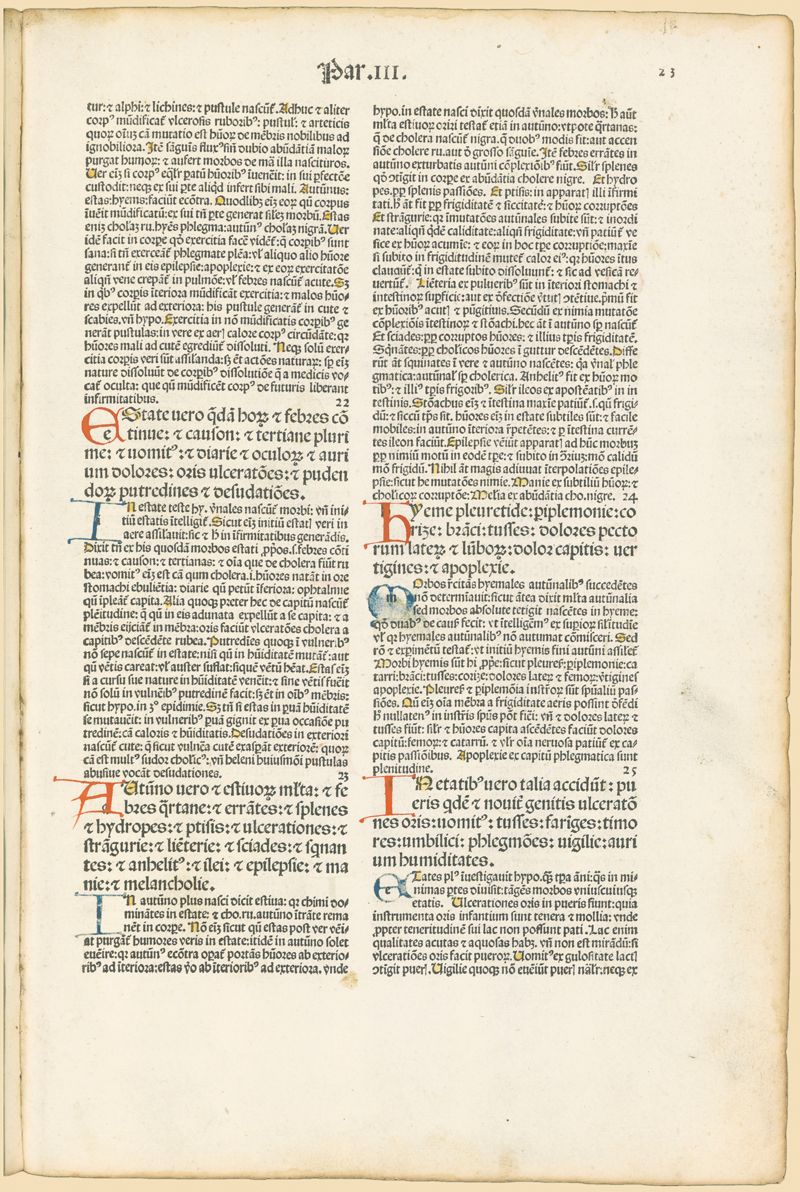 Par.III.
23
tur:⁊ alphi:⁊ lichines:⁊ pustule nascūt̄.Adhuc ⁊ aliter
corpꝰ mūdificat̄ vlcerosis ruboribꝰ: pustul̄: ⁊ arteticis
quoꝝ oīuꝫ cā mutatio est hūoꝝ de mēbris nobilibus ad
ignobiliora.Itē sāguīs fluxꝰsiñ dubio abūdātiā maloꝝ
purgat humoꝝ: ⁊ aufert morbos de mā illa nascituros.
Uer eīꝫ si corpꝰ eq̄lr̄ patū hūoribꝰ īuenēit: in sui p̄fectōe
custodit:neqꝫ ex sui p̄te aliqd̄ infert sibi mali. Autūnus:
estas:hyems:faciūt ecōtra.Quodlibꝫ eīꝫ eoꝝ qū corpus
īuēit mūdificatū:ex sui tn̄ p̄te generat sil̄eꝫ morbū.Estas
enīꝫ cholaꝫ ru.hyēs phlegma:autūnꝰ cholaꝫ nigrā.Uer
idē facit in corꝑe qd̓ exercitia facē vidēt̄:q̄ corꝑibꝰ sunt
sana:si tn̄ exerceāt̄ phlegmate plēa:vl̓ aliquo alio hūore
generant̄ in eis epilepsie:apoplexie:⁊ ex eoꝝ exercitatōe
aliqn̄ vene crepāt̄ in pulmōe:vl̓ febres nascūt̄ acute.Sꝫ
in qͥbꝰ corꝑis īteriora mūdificāt exercitia:⁊ malos hūo-
res expellūt ad exteriora: his pustule generāt̄ in cute ⁊
scabies.vn̄ hypo.Exercitia in nō mūdificatis corꝑibꝰ ge
nerāt pustulas:in vere ex aerꝭ calore corpꝰ circūdāte:qꝛ
hūores mali ad cutē egrediūt̄ dissoluti. Neqꝫ solū exer-
citia corꝑis veri sūt assilanda:sꝫ ēt actōes naturaꝝ: sp̄ eīꝫ
nature dissoluūt de corꝑibꝰ dissolutiōe q̄ a medicis vo-
cat̄ oculta: que qū mūdificēt corpꝰ de futuris liberant
infirmitatibus. 22
EState vero q̄dā hoꝝ ⁊ febres cō
tinue: ⁊ causon: ⁊ tertiane pluri
me: ⁊ uomitꝰ: ⁊ diarie ⁊ oculoꝝ ⁊ auri
um dolores: oris ulceratōes:⁊ puden
doꝝ putredines ⁊ desudatiōes.
IN estate teste hy. v̓nales nascūt̄ morbi: vn̄ ini-
tiū estatis ītelligit̄. Sicut eīꝫ initiū estatꝭ veri in
aere assilaūit:sic ⁊ ħ in īfirmitatibus gen̄adis.
Dixit tn̄ ex his quosdā morbos estati ,p̓p̓os.s.febres cōti
nuas:⁊ causon:⁊ tertianas: ⁊ oīa que de cholera fiūt ru
bea:vomitꝰ eīꝫ est cā qum cholera.i.hūores natāt in ore
stomachi ebuliētia: diarie qū petūt īferiora: ophtalmie
qū īpleāt̄ capita.Alia quoqꝫ p̄ter hec de capitū nascūt̄
plēitudine: q̄ qū in eis adunata expellūt a se capita: ⁊ a
mēbris eijciāt̄ in mēbra:oris faciūt vlceratōes cholera a
capitibꝰ descēdēte rubea. Putredīes quoqꝫ ī vulneribꝰ
nō sepe nascūt̄ in estate:nisi qū in hūiditatē mutat̄:aut
qū vētis careat:vl̓ auster sufflat:siquē vētū hēat.Estas eīꝫ
si a cursu sue nature in hūiditatē venēit:⁊ sine vētis fuēit
nō solū in vulnēibꝰ putredinē facit:sꝫ ēt in oībꝰ mēbris:
sicut hypo.in 3ᵒ epidimie.Sꝫ tn̄ si estas in ꝑua hūiditatē
se mutauēit: in vulneribꝰ ꝑua gignit ex ꝑua occasiōe pu
tredinē:cā caloris ⁊ hūiditatis.Desudatiōes in exteriori
nascūt̄ cute: q̄ sicut vulnēa cutē exasꝑāt exteriorē: quoꝝ
cā est multꝰ sudoꝛ cholicꝰ: vn̄ heleni huiusmōi pustulas
abusiue vocāt desudationes. 23
AUtūno uero ⁊ estiuoꝝ ml̓ta: ⁊ fe
bres qr̄tane: ⁊ errātes: ⁊ splenes
⁊ hydropes: ⁊ ptisis: ⁊ ulcerationes: ⁊
strāgurie:⁊ liēterie: ⁊ sciades: ⁊ sqnan
tes: ⁊ anhelitꝰ: ⁊ ilei: ⁊ epilepsie: ⁊ ma
nie: ⁊ melancholie.
IN autūno plus nasci dicit estiua: qꝛ chimi do-
minātes in estate: ⁊ cho.ru.autūno ītrāte rema
nēt in corꝑe. Nō eīꝫ sicut qū estas post ver vēi-
at purgāt̄ humores veris in estate:itidē in autūno solet
euēire:qꝛ autūnꝰ ecōtra oꝑat̄ portās hūores ab exterio-
ribꝰ ad īteriora:estas v̓o ab īterioribꝰ ad exteriora. vnde
hypo.in estate nasci dixit quosdā v̓nales morbos: ħ aūt
ml̓ta estiuoꝝ oriri testat̄ etiā in autūno:vtpote qr̄tanas:
q̄ de cholera nascūt̄ nigra.q̄ duobꝰ modis fit:aut accen
siōe cholere ru.aut d̓ grosso sāguīe.Itē febres errātes in
autūno exturbatis autūni cōplexiōibꝰ fiūt. Sil̄r splenes
qō ↄtigit in corꝑe ex abūdātia cholere nigre. Et hydro
pes.ꝑꝑ splenis passiōes. Et ptisis:in apparatꝭ illi īfirmi
tati.ħ āt fit ꝑꝑ frigiditatē ⁊ siccitatē: ⁊ hūoꝝ corruptōes
Et strāgurie:qꝛ īmutatōes autūnales subite sūt: ⁊ inordi
nate:aliqn̄ caliditate:aliqn̄ frigiditate:vn̄ patiūt̄ ve
sice ex hūoꝝ acumīe: ⁊ eoꝝ in hoc tp̄e corruptiōe:maxīe
si subito in frigiditudinē mutet̄ calor eiꝰ:qꝛ hūores ītus
claudūt̄:q̄ in estate subito dissoluunt̄: ⁊ sic ad vesicā re-
uertūt̄. Liēteria ex vulneribꝰ sūt in īteriori stomachi ⁊
intestinoꝝ suꝑficie:aut ex d̓fectiōe v̓tutꝭ ↄtētiue.p̓mū fit
ex hūoribꝰ acutꝭ ⁊ pūgitiuis.Secūdū ex nimia mutatōe
cōplexiōis ītestinoꝝ ⁊ stōachi.hec āt ī autūno sp̄ nascūt̄
Et sciades:ꝑꝑ corruptos hūores: ⁊ illius tp̄is frigiditatē.
Sqnātes:ꝑꝑ cholicos hūores ī guttur descēdētes.Diffe
rūt āt squinates ī vere ⁊ autūno nascētes: q̄a v̓nal̓ phle
gmatica:autūnal̓ sp̄ cholerica. Anhelitꝰ fit ex hūoꝝ mo
tibꝰ: ⁊ illiꝰ tp̄is frigorꝭ. Sil̄r ileos ex apostēatibꝰ in in
testinis. Stōachus eīꝫ ⁊ ītestina maxīe patiūt̄.s.qū frigi-
dū:⁊ siccū tp̄s sit. hūores eīꝫ in estate subtiles sūt:⁊ facile
mobiles:in autūno īteriora p̄petētes:⁊ ꝑ ītestina currē-
tes ileon faciūt.Epilepsie vēiūt apparatꝭ ad hūc morbuꝫ
ꝑꝑ nimiū motū in eodē tp̄e:⁊ subito in ↄ̓riuꝫ:mō calidū
mō frigidū.Nihil āt magis adiuuat īterpolatiōes epile-
psie:sicut he mutatōes nimie. Manie ex subtiliū hūoꝝ: ⁊
cholicoꝝ corruptōe:Melīa ex abūdātia cho.nigre. 24
HYeme pleuretide:ꝑiplemonie:co
rize: brāci: tusses: dolores pecto
rum lateꝝ ⁊ lūboꝝ:dolor capitis: uer
tigines:⁊ apoplexie.
MOrbos r̄citās hyemales autūnalibꝰ succedētes
nō determīauit:sicut ātea dixit ml̓ta autūnalia
sed morbos absolute tetigit nascētes in hyeme:
qō duabꝰ de causꝭ fecit: vt ītelligēm̓ ex suꝑior̓ sil̓itudīe
vl̓ qꝛ hyemales autūnalibꝰ nō autumat cōmisceri. Sed
rō ⁊ exꝑimētū testat̄: vt initiū hyemis fini autūni assilet̄
Morbi hyemis sūt hi ,p̓p̓e:sicut pleures̄:ꝑiplemonie:ca
tarri:brāci:tusses:corize:dolores lateꝝ ⁊ femoꝝ:v̓tigines
apoplexie. Pleures̄ ⁊ ꝑiplemōia instr̄oꝝ sūt spūaliū pas-
siōes. Qū eīꝫ oīa mēbra a frigiditate aeris possint d̓fēdi
ħ nullatenꝰ in instr̄is spūs pōt fiēi: vn̄ ⁊ dolores lateꝝ ⁊
tusses fiūt: sil̄r ⁊ hūores capita ascēdētes faciūt dolores
capitū:femoꝝ:⁊ catarrū. ⁊ vl̓r oīa neruosa patiūt̄ ex ca-
pitis passiōibus. Apoplexie ex capitū phlegmatica sunt
plenitudine. 25
IN etatibꝰ uero talia accidūt: pu
eris qdē ⁊ nouiꝭ genitis ulceratō
nes oris:uomitꝰ: tusses:fariges:timo
res:umbilici: phlegmōes: uigilie:auri
um humiditates.
ETates plꝰ īuestigauit hypo.q̄ꝫ tp̄a āni:q̄s in mi-
nimas ꝑtes diuisit:tāgēs morbos vniuscuiusqꝫ
etatis. Ulcerationes oris in pueris fiunt:quia
instrumenta oris infantium sunt tenera ⁊ mollia: vnde
,ꝓpter teneritudinē sui lac non possunt pati. Lac enim
qualitates acutas ⁊ aquosas habꝫ. vn̄ non est mirādū:si
vlceratiōes oris facit pueroꝝ.Uomitꝰex gulositate lactꝭ
ↄtigit puerꝭ.Uigilie quoqꝫ nō euēiūt puerꝭ nāl̓r:neqꝫ ex